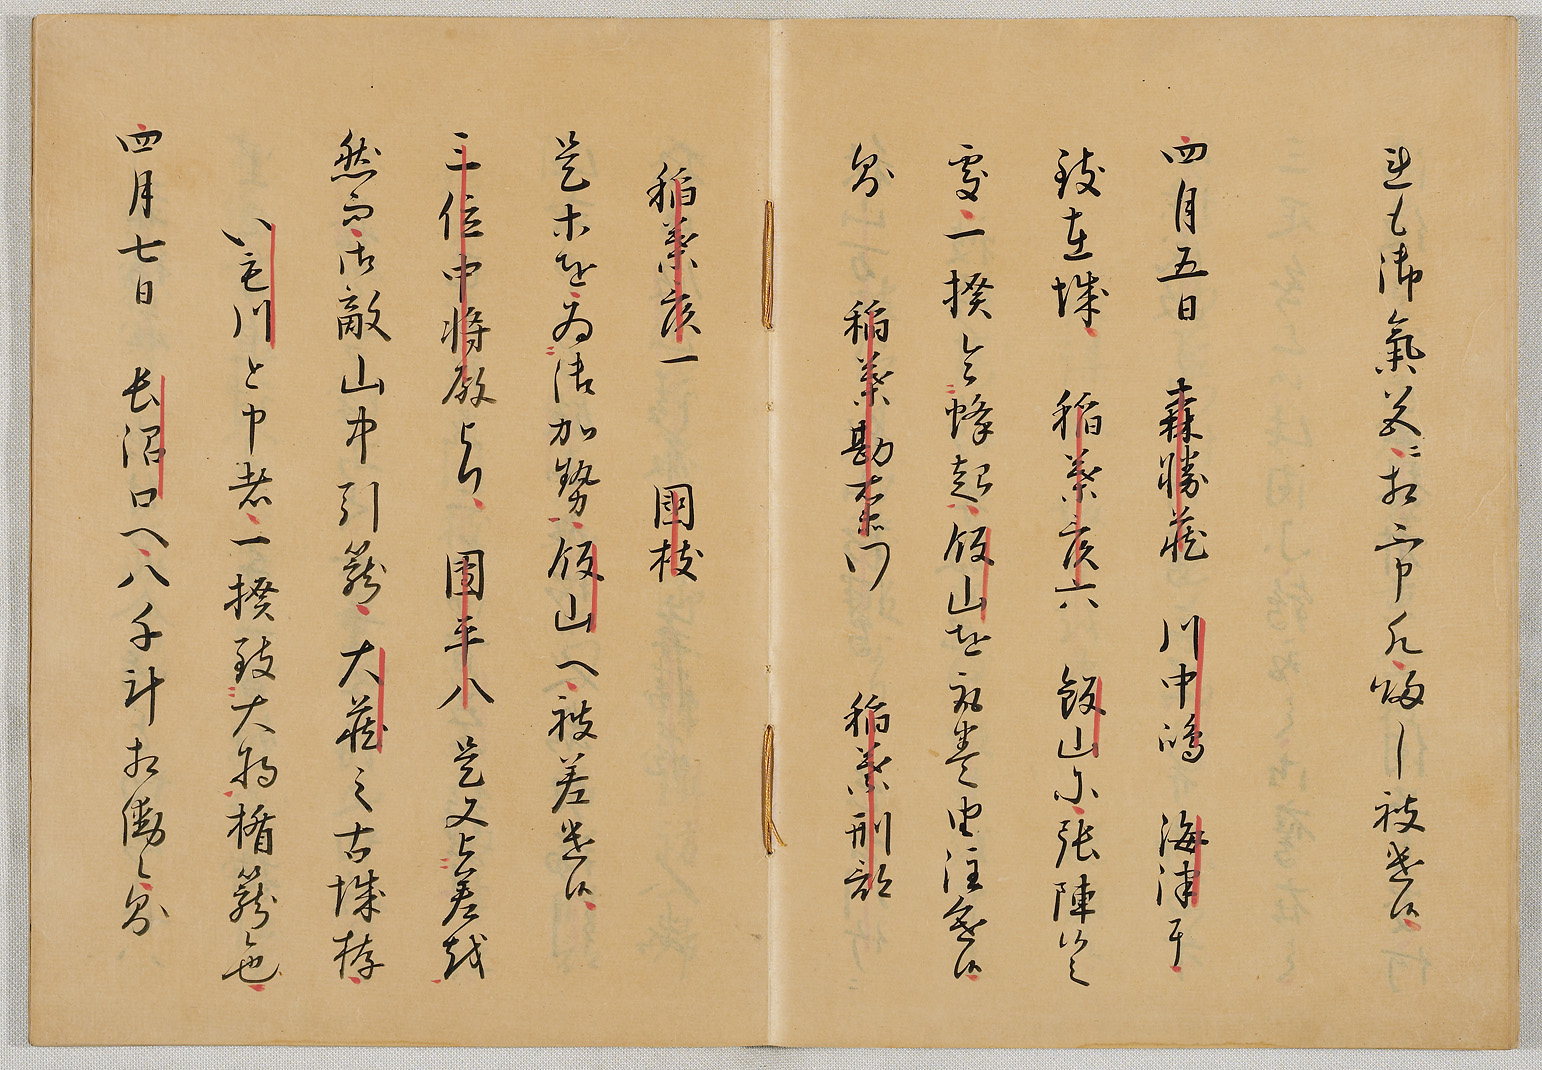 も御氣ニ相し被遣候
四月五日 森勝蔵 川中嶋 海津ニ而
致在城 稲葉彦六 飯山ニ張陣候之
處一揆令蜂起飯山を取巻之由注進候
則 稲葉勘右衛門 稲葉刑部
稲葉彦一 國枝
是等を為御加勢飯山へ被差遣候
三位中将殿より 團平八 是又被差越
然而御敵山中引籠大蔵之古城拵
いも川と申者一揆致大将楯籠也
四月七日 長沼口へ八千計相働候則